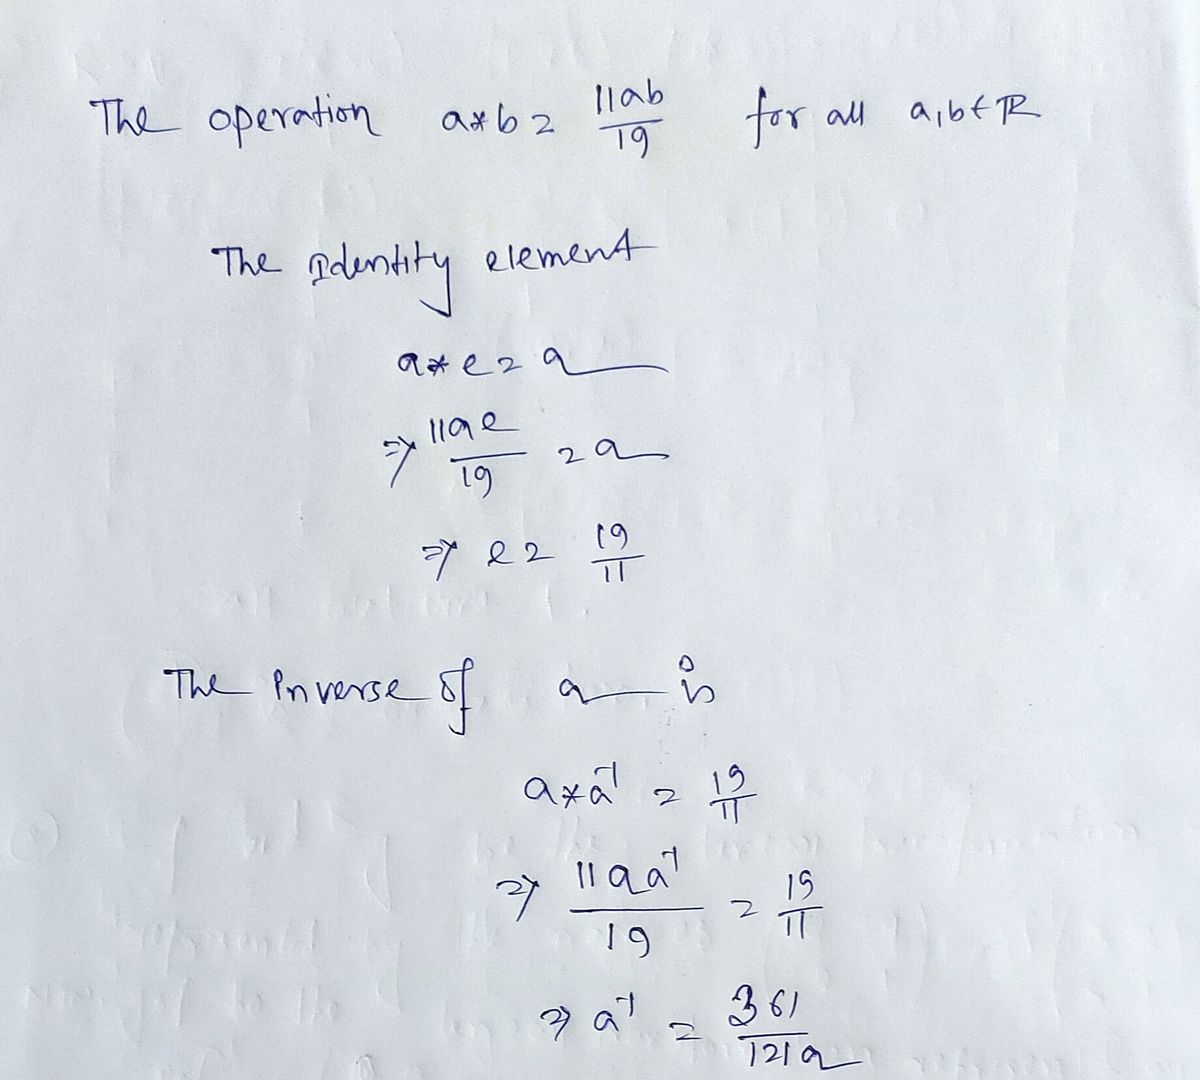 The operation a*b = 11ab/19 for all a,b∈ℝ
The Identity element
a*e = a
⇒ 11ae/19 = a
⇒ e = 19/11
The Inverse of a is
a*a⁻¹ = 19/11
⇒ 11aa⁻¹/19 = 19/11
⇒ a⁻¹ = 361/121a